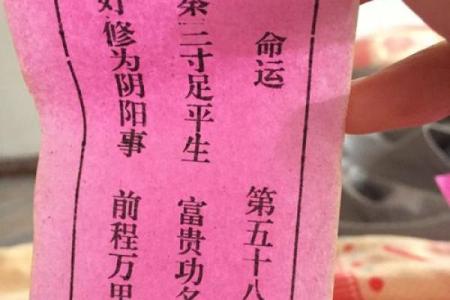 命运 第五十八
三寸足平生 富贵功名
修为阴阳事 前程万里